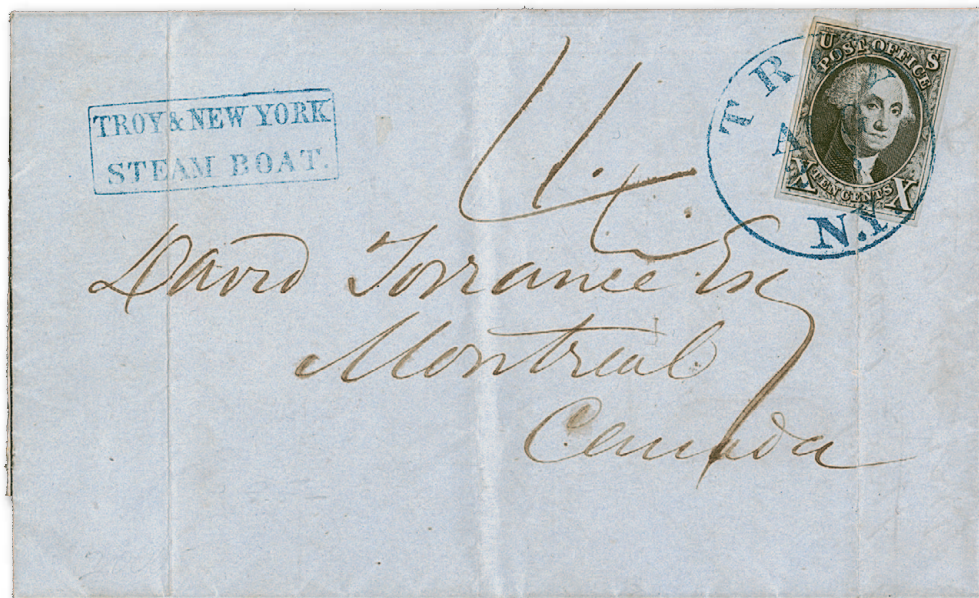 TROY & NEW YORK
STEAM BOAT.
TROY
N.Y.
U S
POST OFFICE
TEN CENTS
X
David Torrance Esq
Montreal
Canada